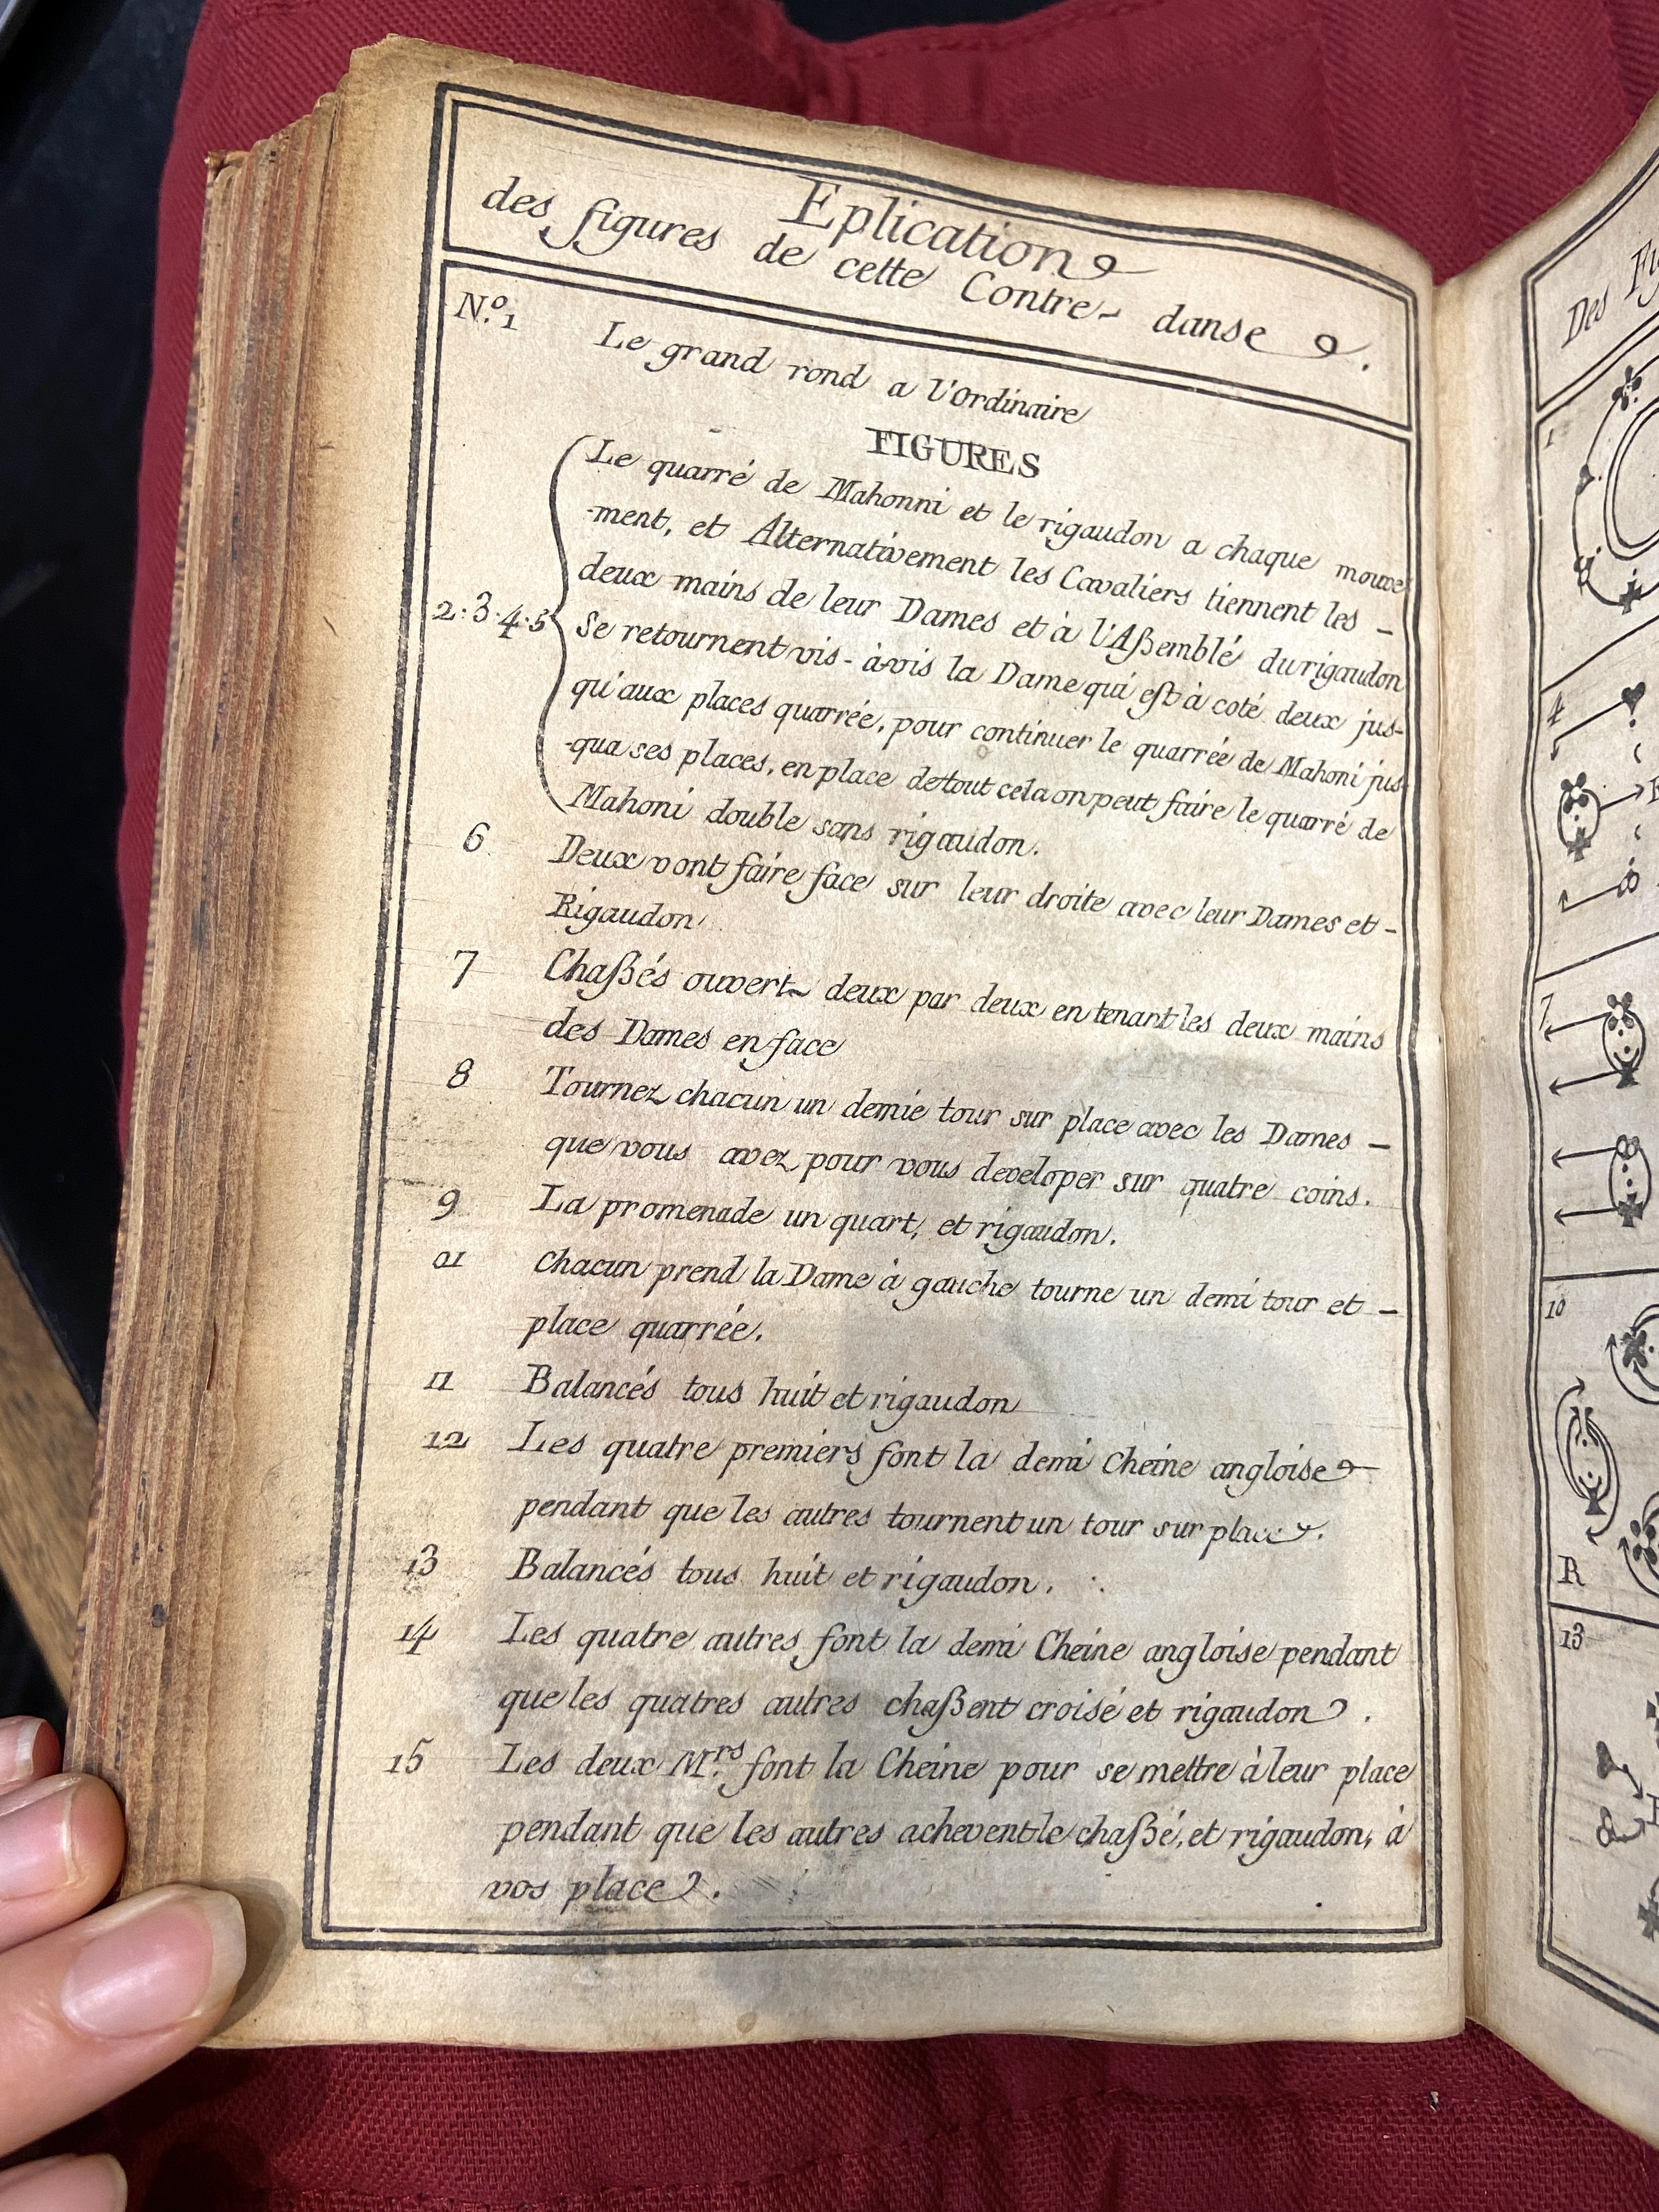 Eplication
des figures de cette Contre-danse.
N.o 1 Le grand rond a l'Ordinaire
FIGURES
Le quarré de Mahonni et le rigaudon a chaque mouve
-ment, et Alternativement les Cavaliers tiennent les -
deux mains de leur Dames et à l'Aßemblé du rigaudon
2·3·4·5 Se retournent vis-à-vis la Dame qui est à coté deux jus-
qu'aux places quarrée, pour continuer le quarrée de Mahoni jus-
-qua ses places, en place de tout cela on peut faire le quarré de
Mahoni double sans rigaudon.
6 Deux vont faire face sur leur droite avec leur Dames et -
Rigaudon
7 Chaßés ouvert deux par deux en tenant les deux mains
des Dames en face
8 Tournez chacun un demie tour sur place avec les Dames -
que vous avez pour vous developer sur quatre coins.
9 La promenade un quart, et rigaudon.
01 chacun prend la Dame à gauche tourne un demi tour et -
place quarrée.
11 Balancés tous huit et rigaudon
12 Les quatre premiers font la demi Cheine angloise
pendant que les autres tournent un tour sur place.
13 Balancés tous huit et rigaudon.
14 Les quatre autres font la demi Cheine angloise pendant
que les quatres autres chaßent croisé et rigaudon.
15 Les deux M.rs font la Cheine pour se mettre à leur place
pendant que les autres achevent le chaßé, et rigaudon, à
vos place.
Des
1
4
7
10
R
13